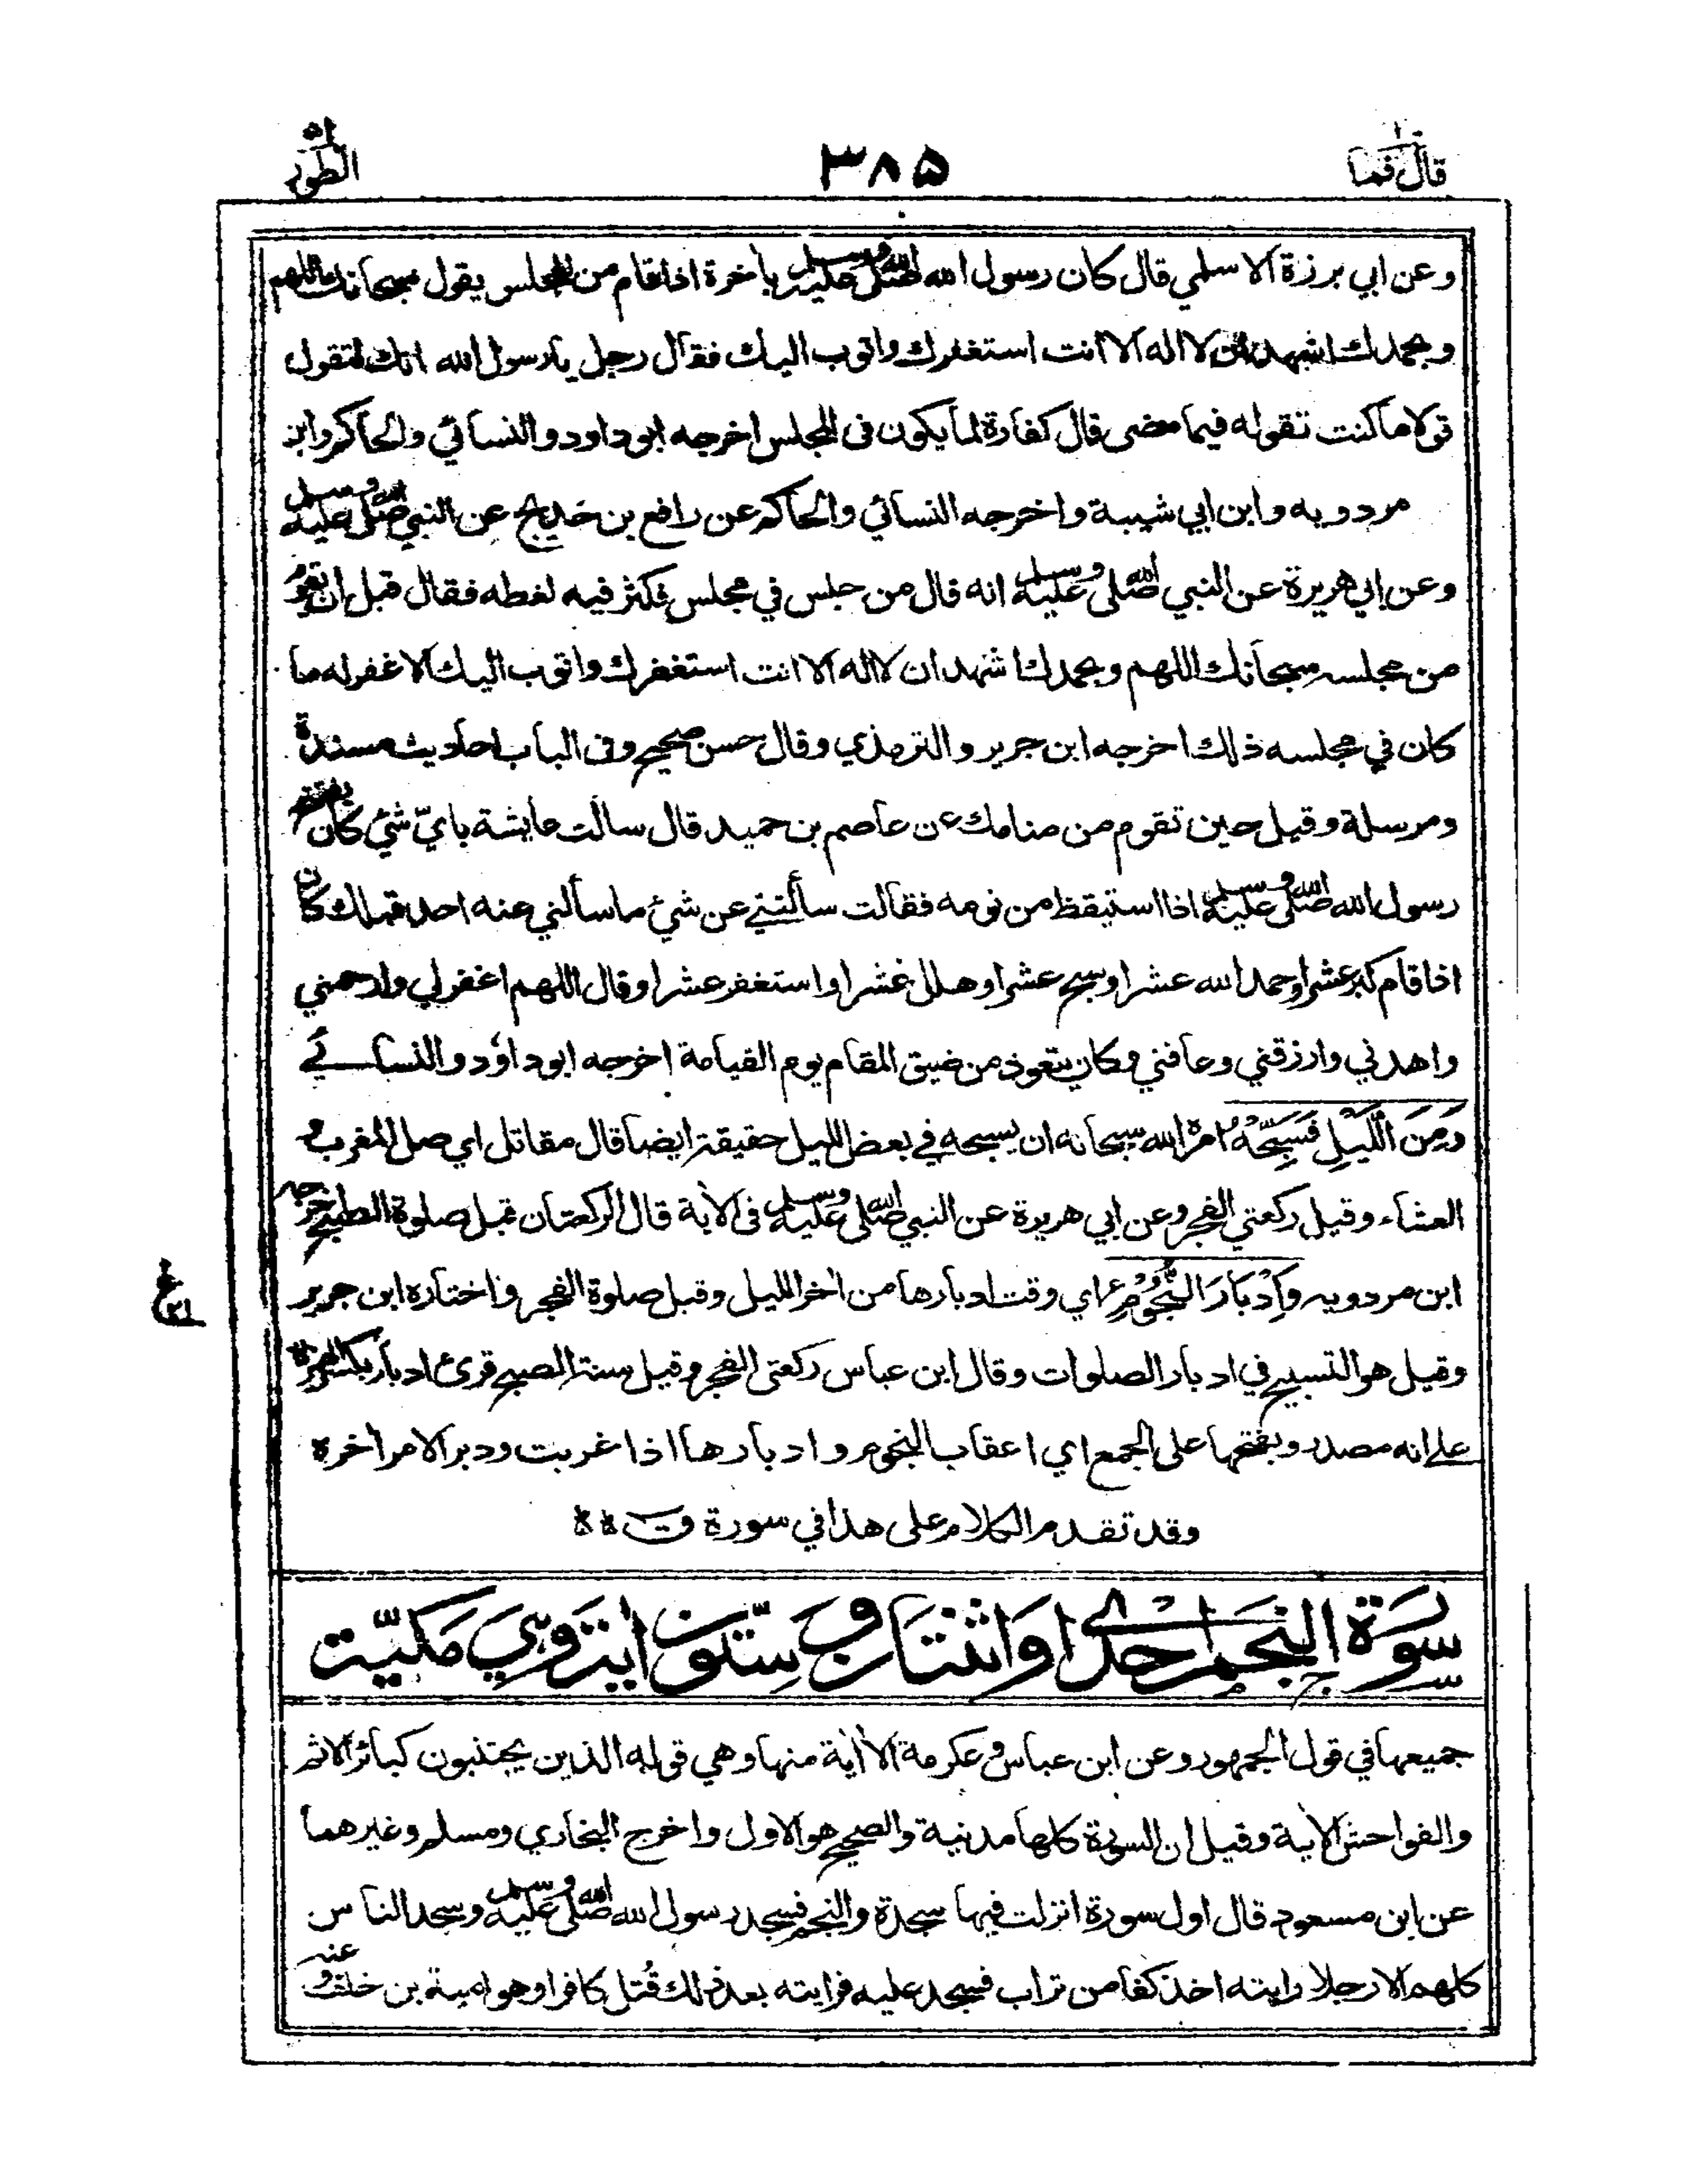 قال فما ٣٨٥ الطور
وعن ابي برزة الاسلمي قال كان رسول الله صلى الله عليه وسلم بأخرة اذا قام من المجلس يقول سبحانك اللهم
وبحمدك اشهد ان لا اله الا انت استغفرك واتوب اليك فقال رجل يا رسول الله انك لتقول
قولا ما كنت تقوله فيما مضى قال كفارة لما يكون في المجلس اخرجه ابو داود والنسائي والحاكم وابن
مردويه وابن ابي شيبة واخرجه النسائي والحاكم عن رافع بن خديج عن النبي صلى الله عليه وسلم
وعن ابي هريرة عن النبي صلى الله عليه وسلم انه قال من جلس في مجلس فكثر فيه لغطه فقال قبل ان يقوم
من مجلسه سبحانك اللهم وبحمدك اشهد ان لا اله الا انت استغفرك واتوب اليك الا غفر له ما
كان في مجلسه ذلك اخرجه ابن جرير والترمذي وقال حسن صحيح وفي الباب احاديث مسندة
ومرسلة وقيل حين تقوم من منامك عن عاصم بن حميد قال سالت عايشة باي شئ كان يفتتح
رسول الله صلى الله عليه وسلم اذا استيقظ من نومه فقالت سألتني عن شئ ما سألني عنه احد قبلك كان
اذا قام كبر عشرا وحمد الله عشرا وسبح عشرا وهلل عشرا واستغفر عشرا وقال اللهم اغفر لي وارحمني
واهدني وارزقني وعافني وكان يتعوذ من ضيق المقام يوم القيامة اخرجه ابو داؤد والنسائي
وَمِنَ اللَّيْلِ فَسَبِّحْهُ امره الله سبحانه ان يسبحه في بعض الليل حقيقة ايضا قال مقاتل اي صل المغرب و
العشاء وقيل ركعتي الفجر وعن ابي هريرة عن النبي صلى الله عليه وسلم في الآية قال الركعتان قبل صلوة الصبح اخرجه
ابن مردويه وَإِدْبَارَ النُّجُوْمِ اي وقت ادبارها من اخر الليل وقبل صلوة الفجر واختاره ابن جرير
وقيل هو التسبيح في ادبار الصلوات وقال ابن عباس ركعتي الفجر وقيل سنة الصبح قرئ ادبار بكسر الهمزة
على انه مصدر وبفتحها على الجمع اي اعقاب النجوم وادبارها اذا غربت ودبر الامر آخره
وقد تقدم الكلام على هذا في سورة ق
سورة النجم احدى او اثنتان وستون اية وهي مكية
جميعها في قول الجمهور وعن ابن عباس وعكرمة الا آية منها وهي قوله الذين يجتنبون كبائر الاثم
والفواحش الآية وقيل ان السورة كلها مدنية والصحيح هو الاول واخرج البخاري ومسلم وغيرهما
عن ابن مسعود قال اول سورة انزلت فيها سجدة والنجم فسجد رسول الله صلى الله عليه وسلم وسجد الناس
كلهم الا رجلا رايته اخذ كفا من تراب فسجد عليه فرايته بعد ذلك قُتل كافرا وهو امية بن خلف وعنه